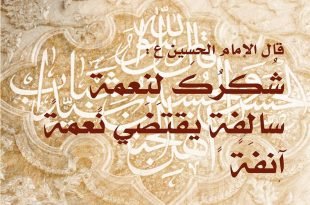 قال الإمام الحسين ع :
شُكرُكَ لِنعمةٍ
سالفةٍ يقتضي نعمةً
آنفةً